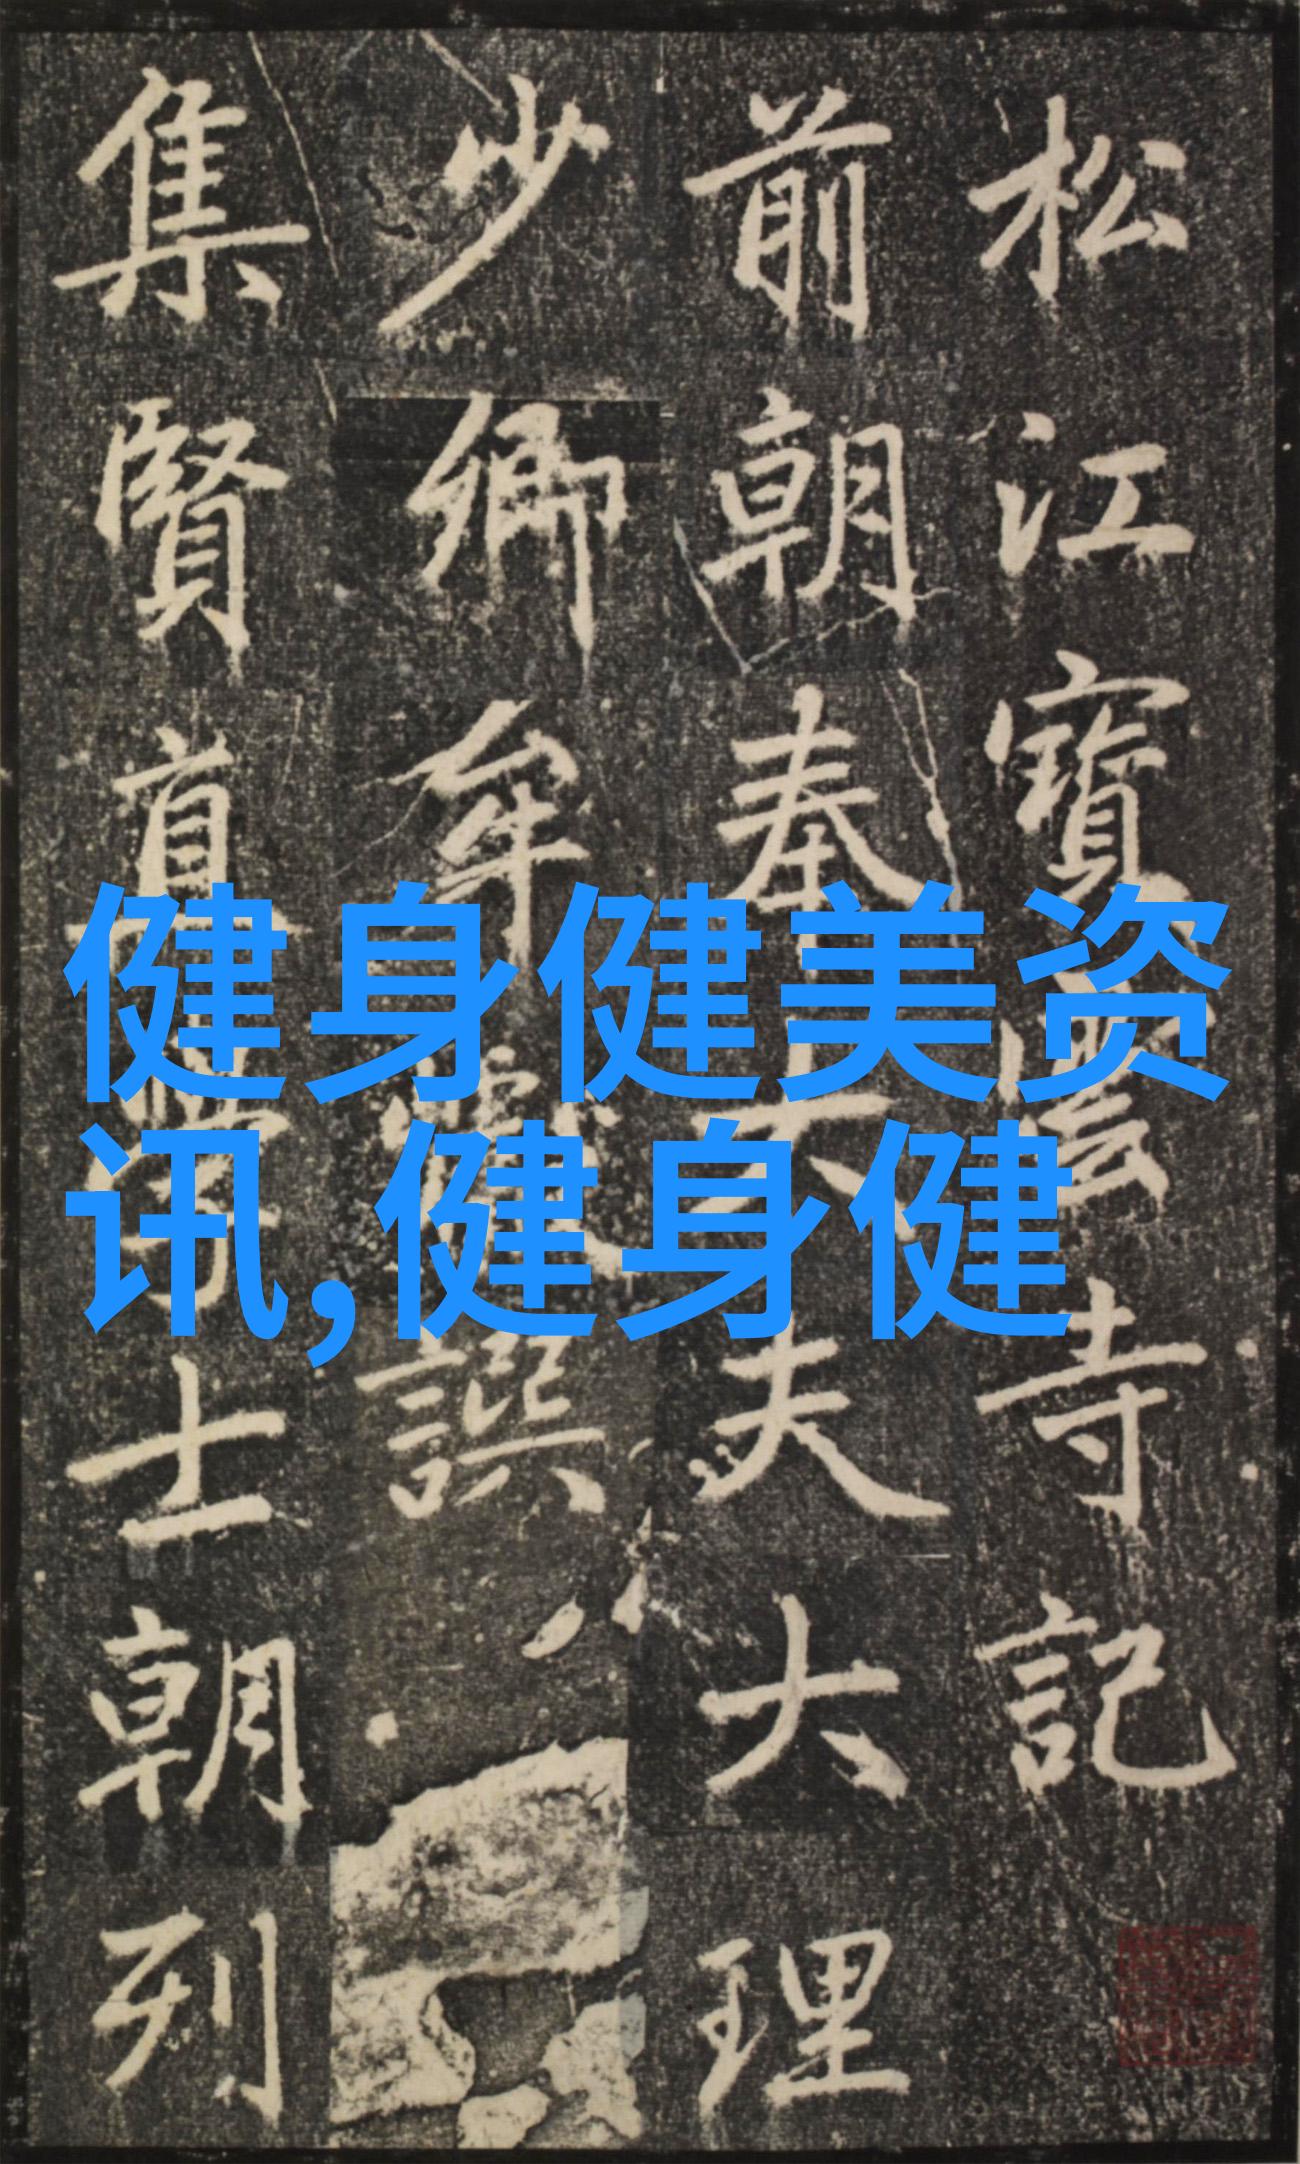 松江寶雲寺記
前朝奉大夫大理
少卿牟巘譔
集賢直學士朝列
健身健美资
讯,健身健